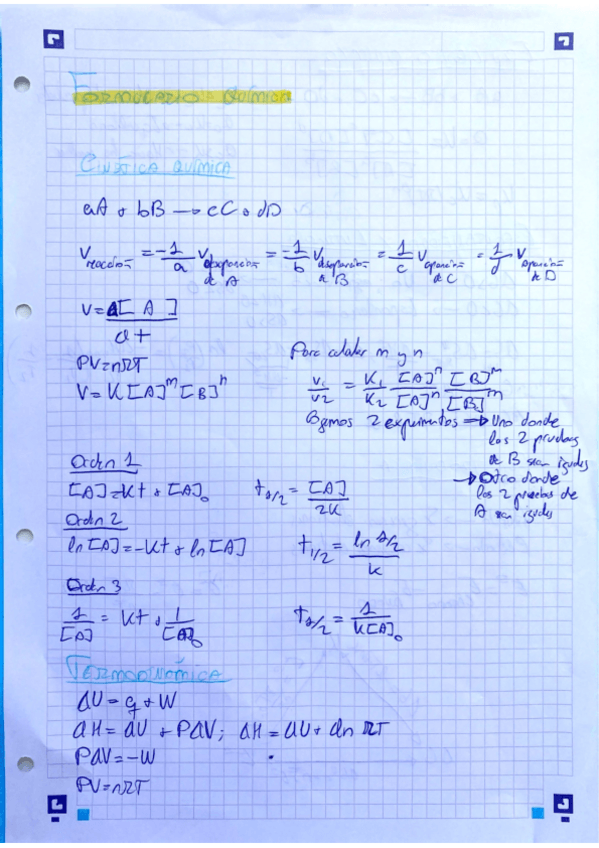 Formulario Química
Cinética química
aA + bB → cC + dD
V reacción = -1/a V desaparición de A = -1/b V desaparición de B = 1/c V aparición de C = 1/d V aparición de D
V = Δ[A] / Δt
PV = nRT
V = K[A]^m [B]^n
Para calcular m y n
V1/V2 = K1/K2 [A]^n/[A]^n [B]^m/[B]^m
2 experimentos ⇒ Uno donde
las 2 pruebas
de B sean iguales
→ Otro donde
las 2 pruebas de
A sean iguales
Orden 1
[A] = Kt + [A]₀ t1/2 = [A] / 2K
Orden 2
ln[A] = -Kt + ln[A] t1/2 = ln 1/2 / K
Orden 3
1/[A] = Kt + 1/[A]₀ t1/2 = 1 / K[A]₀
Termodinámica
ΔU = q + W
ΔH = ΔU + PΔV; ΔH = ΔU + Δn RT
PΔV = -W
PV = nRT